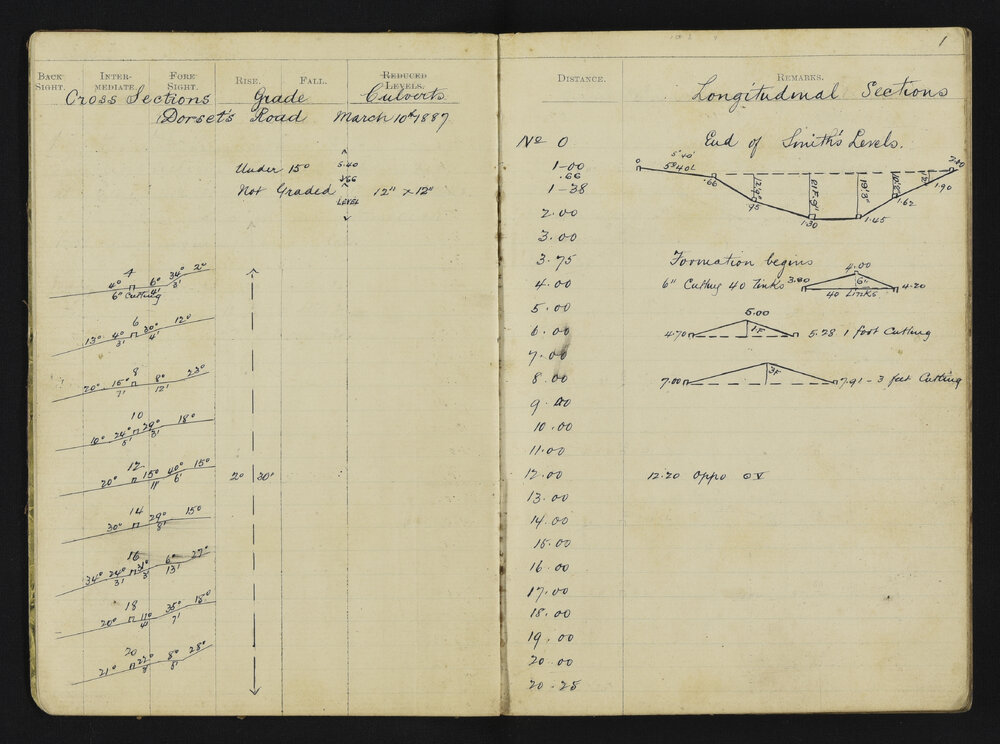 BACK SIGHT. INTER-MEDIATE. FORE SIGHT. RISE. FALL. REDUCED LEVELS.
Cross Sections Grade Culverts
Dorset's Road March 10th 1887
Under 15° 5.40
.66
Not Graded LEVEL 12" x 12"
4
4° 6° 34° 2°
6" Cutting 4' 3'
6
13° 4° 30° 12°
3' 4'
8
20° 15° 8° 23°
7' 12'
10
10° 24° 29° 18°
5' 3'
12
20° 15° 40° 15°
11' 6'
2° 30°
14
30° 29° 15°
8'
16
34° 24° 31° 6° 27°
3' 3' 13'
18
20° 11° 35° 18°
4' 7'
20
21° 22° 8° 28°
8' 5'
1
DISTANCE. REMARKS.
Longitudinal Sections
No 0 End of Smith's Levels.
1-00
.66
1-38
2.00
3.00
3.75
4.00
5.00
6.00
7.00
8.00
9.00
10.00
11.00
12.00
13.00
14.00
15.00
16.00
17.00
18.00
19.00
20.00
20-25
0 5°40' .66 .95 1.30 1.45 1.62 1.90 2.00
12'9" 21F.9" 19'3" 10'2"
Formation begins
6" Cutting 40 links 3.80 4.00 6" 4.20
40 Links
5.00
4.70 1F 5.28 1 foot Cutting
7.00 3F 7.91 - 3 feet Cutting
12.20 Oppo